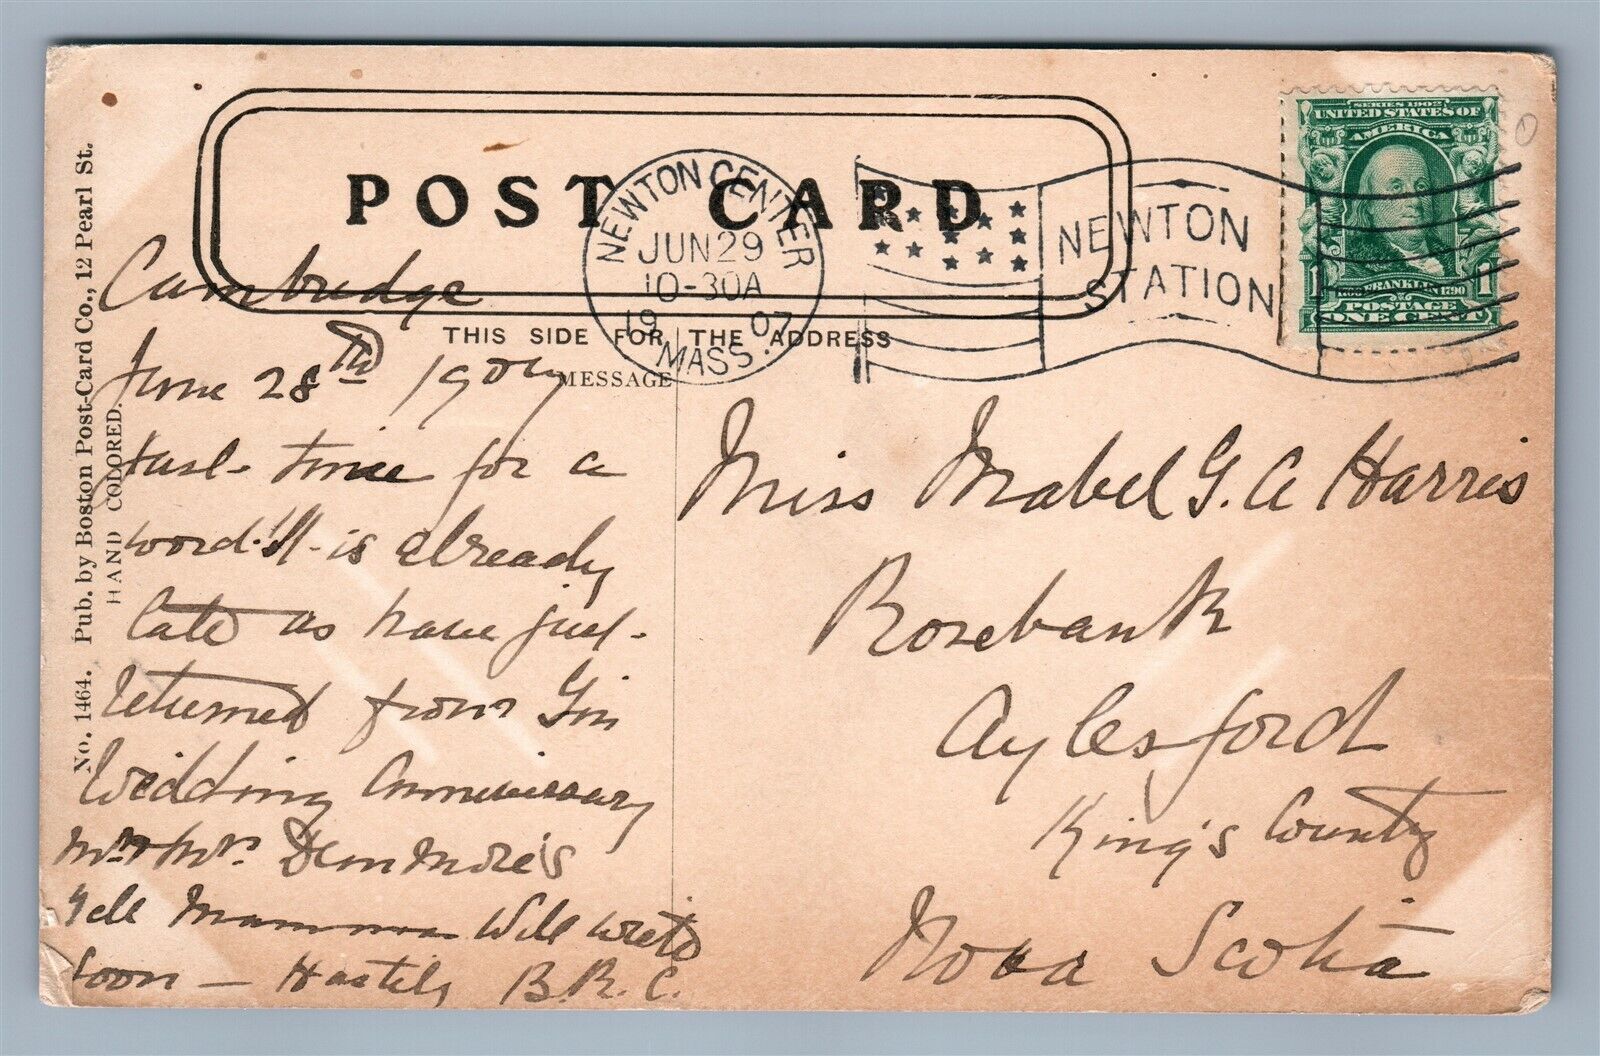 POST CARD
THIS SIDE FOR THE ADDRESS
MESSAGE
No. 1464. Pub. by Boston Post-Card Co., 12 Pearl St.
HAND COLORED.
NEWTON CENTER
JUN 29
10-30A
1907
MASS.
NEWTON
STATION
SERIES 1902
UNITED STATES OF
AMERICA
1 1
FRANKLIN 1790
POSTAGE
ONE CENT
Cambridge
June 28th 1907
Just time for a
word. It is already
late as have just
returned from
Wedding Anniversary
Mr & Mrs Denmore's
Tell Mamma Will write
soon — Hastily B.R.C.
Miss Mabel G. A Harris
Rosebank
Aylesford
King's County
Nova Scotia